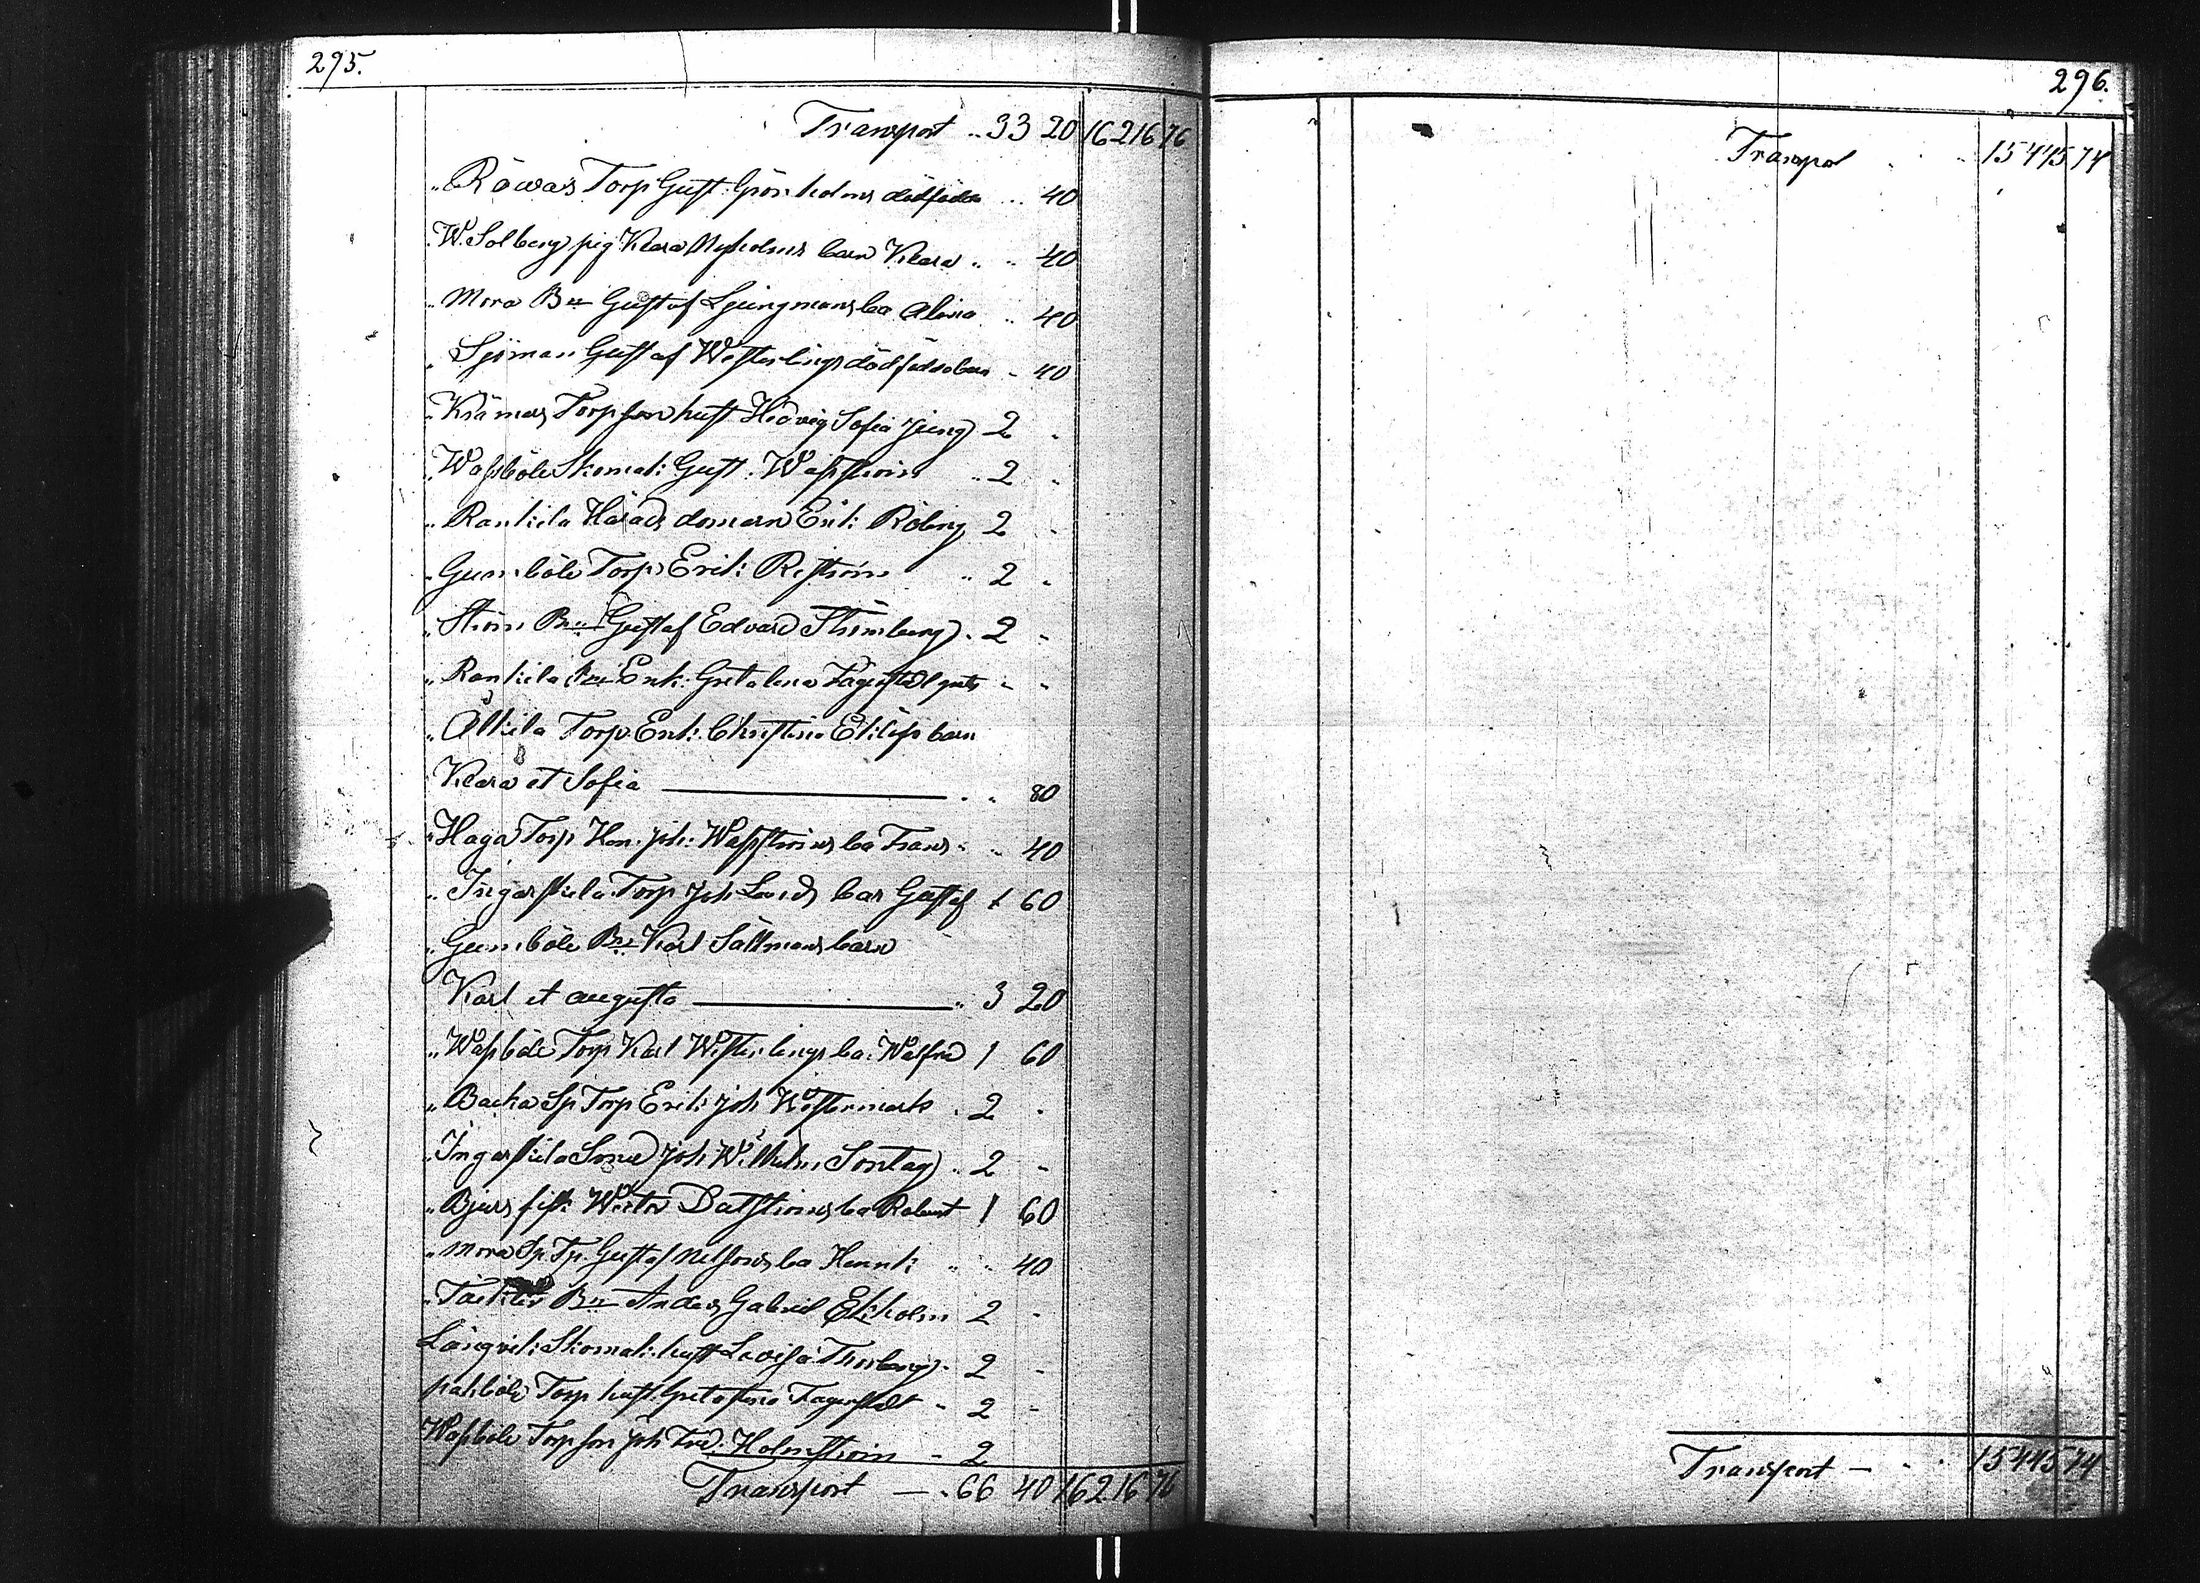 295.
Transport .. 33 20 16216 76
" Röwas Torp Gust: Grönholms dödfödda .. 40
" W. Solberg pig Klara Nyholms barn Klara " " 40
" Mora Bn Gustaf Ljungmans ba Alma .. 40
" Sjöman Gustaf Westerlings dödfödda barn - 40
" Krämars Torp son hust Hedvig Sofia Ljung 2 "
" Wassböle Skomak: Gust: Wasström .. 2 "
" Rankila Härads domarn Erik: Röberg 2 "
" Gumböle Torp Erik: Reström " 2 "
" Ström Bn Gustaf Edvard Strömberg . 2 "
" Rankila Bn Enk: Greta Lena Fagerstedt gratis " "
" Älkila Torp Enk: Christina Ekløfs barn
Klara et Sofia . . 80
" Haga Torp Kon. Joh: Wasströms ba Frans " " 40
" Ingarskila Torp Joh Lunds bar Gustaf 1 60
" Gumböle Bn Karl Sällmans barn
Karl et Augusta " 3 20
" Wassböle Torp Karl Westerlings ba: Walfrid 1 60
" Backa Sp Torp Erik: Joh Westermark . 2 "
" Ingarskila Smed Joh: Wilhelm Sontag .. 2 "
" Bjurs fisk: Wictor Dalströms ba Robert 1 60
" Mora Sp Tp. Gustaf Nelsons ba Henrik " " 40
" Täkter Bn Anders Gabriel Ekholm 2 "
Långvik: Skomak: hust Lovisa Thorberg . 2 "
påhböle Torp hust: Greta Stina Fagerstedt " 2 "
Wassböle Torp son Joh Fred: Holmström - 2
Transport — . 66 40 16216 76
296.
Transport . . . 15445 74
Transport — . . 15445 74